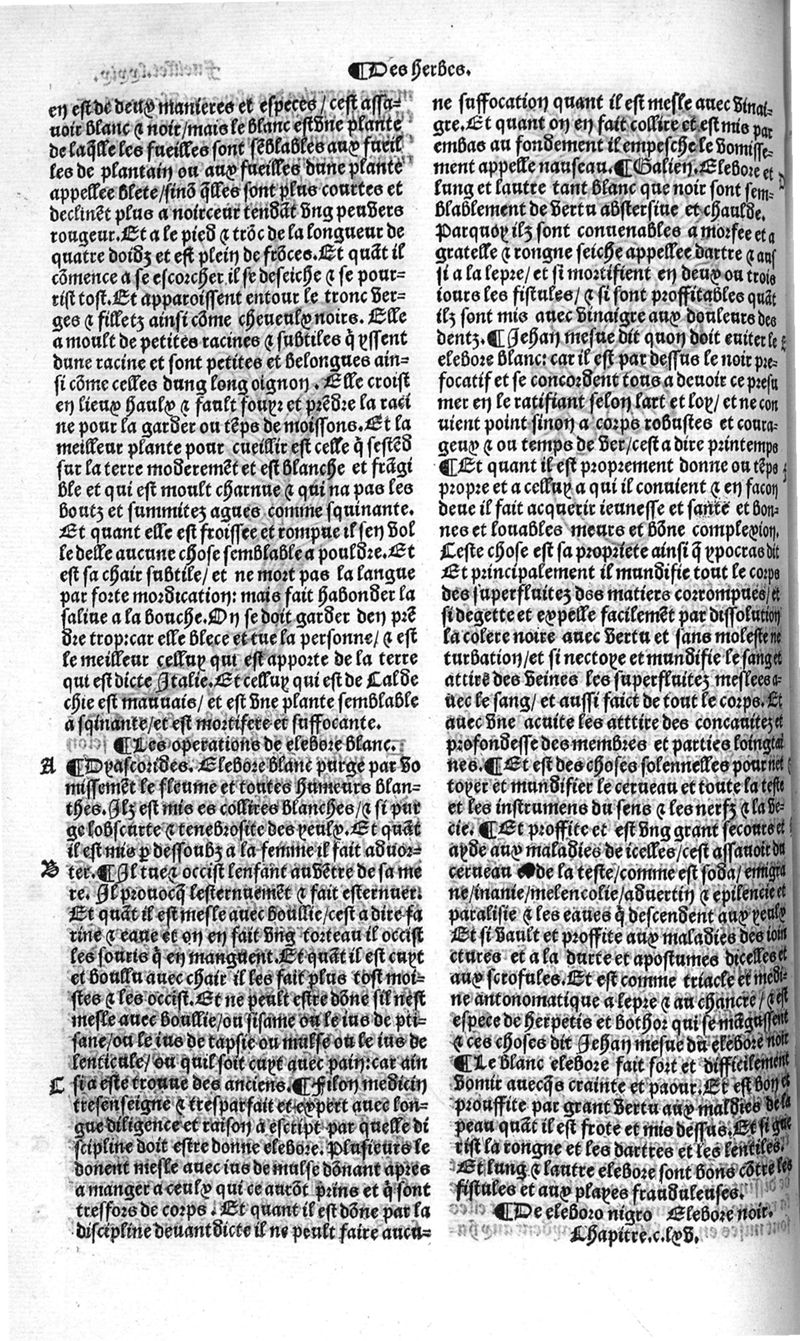 ¶Des herbes.
en est de deux manieres et especes/ cest assa-
uoir blanc & noir/mais le blanc est vne plante
de laq̃lle les fueilles sont sẽblables aux fueil
les de plantain ou aux fueilles dune plante
appellee blete/sinõ q̃lles sont plus courtes et
declinẽt plus a noirceur tendãt vng peu vers
rougeur. Et a le pied & trõc de la longueur de
quatre doidz et est plein de frõces. Et quãt il
cõmence a se escorcher il se deseiche & se pour-
rist tost. Et apparoissent entour le tronc ver-
ges & filletz ainsi cõme cheueulx noirs. Elle
a moult de petites racines & subtiles q̃ yssent
dune racine et sont petites et belongues ain-
si cõme celles dung long oignon. Elle croist
en lieux haulx & fault fouyr et prẽdre la raci
ne pour la garder ou tẽps de moissons. Et la
meilleur plante pour cueillir est celle q̃ sestẽd
sur la terre moderemẽt et est blanche et frãgi
ble et qui est moult charnue & qui na pas les
boutz et summitez agues comme squinante.
Et quant elle est froissee et rompue il sen vol
le delle aucune chose semblable a pouldre. Et
est sa chair subtile/ et ne mort pas la langue
par forte mordication: mais fait habonder la
saliue a la bouche. On se doit garder den prẽ
dre trop: car elle blece et tue la personne/ & est
le meilleur celluy qui est apporte de la terre
qui est dicte Italie. Et celluy qui est de Calde
chie est mauuais/ et est vne plante semblable
a sqinante/et est mortifere et suffocante.
¶Les operations de elebore blanc.
A ¶Dyascorides. Elebore blanc purge par vo
missemẽt le fleume et toutes humeurs blan-
ches. Ilz est mis es collires blanches/ & si pur
ge lobscurte & tenebrosite des yeulx. Et quãt
il est mis p̱ dessoubz a la femme il fait aduor-
B ter. ¶Il tue & occist lenfant au vẽtre de sa me
re. Il prouocq̃ lesternuemẽt & fait esternuer.
Et quãt il est mesle auec boullie/cest a dire fa
rine & eaue et on en fait vng torteau il occist
les souris q̃ en manguent. Et quãt il est cuyt
et boullu auec chair il les fait plus tost moi-
stes & les occist. Et ne peult estre dõne sil nest
mesle auec boullie/ou sisame ou le ius de pti-
sane/ou le ius de tapsie ou mulse ou le ius de
lenticule/ ou quil soit cuyt auec pain: car ain
C si a este trouue des anciens. ¶Filon medicin
tresenseigne & tresparfait et expert auec lon-
gue diligence et raison a escript par quelle di
scipline doit estre donne elebore. Plusieurs le
donent mesle auec ius de mulse dõnant apres
a manger a ceulx qui ce aurõt prins et q̃ sont
tresfors de corps. Et quant il est dõne par la
discipline deuant dicte il ne peult faire aucu-
ne suffocation quant il est mesle auec vinai-
gre. Et quant on en fait collire et est mis par
embas au fondement il empesche le vomisse-
ment appelle nauseau. ¶Galien. Elebore et
lung et lautre tant blanc que noir sont sem-
blablement de vertu abstersiue et chaulde.
Parquoy ilz sont conuenables a morfee et a
gratelle & rongne seiche appellee dartre & aus
si a la lepre/ et si mortifient en deux ou trois
iours les fistules/ & si sont proffitables quãt
ilz sont mis auec vinaigre aux douleurs des
dentz. ¶Jehan mesue dit quon doit euiter le
elebore blanc: car il est par dessus le noir pre-
focatif et se concordent tous a deuoir ce presu
mer en le ratifiant selon lart et loy/ et ne con
uient point sinon a corps robustes et coura-
geux & ou temps de ver/cest a dire printemps
¶Et quant il est proprement donne ou tẽps
propre et a celluy a qui il conuient & en facon
deue il fait acquerir ieunesse et sante et bon-
nes et louables meurs et bõne complexion.
Ceste chose est sa propriete ainsi q̃ ypocras dit
Et principalement il mundifie tout le corps
des superfluitez des matiers corrompues/ et
si degette et expelle facilemẽt par dissolution
la colere noire auec vertu et sans moleste ne
turbation/et si nectoye et mundifie le sang et
attire des veines les superfluitez meslees a-
uec le sang/ et aussi faict de tout le corps. Et
auec vne acuite les atttire des concauitez et
profondesse des membres et parties loingtai
nes. ¶Et est des choses solennelles pour net
toyer et mundifier le cerueau et toute la teste
et les instrumens du sens & les nerfz & la ve-
cie. ¶Et proffite et est vng grant secours et
ayde aux maladies de icelles/cest assauoir du
cerueau de la teste/comme est soda/ emigra
ne/inanie/melencolie/aduertin & epilencie et
paralisie & les eaues q̃ descendent aux yeulx
Et si vault et proffite aux maladies des ioin
ctures et a la durte et apostumes dicelles et
aux scrofules. Et est comme triacle et medi-
ne antonomatique a lepre & au chancre/ & est
espece de herpetis et bothor qui se mãgussent
& ces choses dit Jehan mesue du elebore noir
¶Le blanc elebore fait fort et difficilement
vomir auecq̃s crainte et paour. Et est bon et
prouffite par grant vertu aux maldies de la
peau quãt il est frote et mis dessus. Et si gue
rist la rongne et les dartres et les lentiles.
Et lung & lautre elebore sont bons cõtre les
fistules et aux playes frauduleuses.
¶De eleboro nigro Elebore noir.
Chapitre. c.lxv.